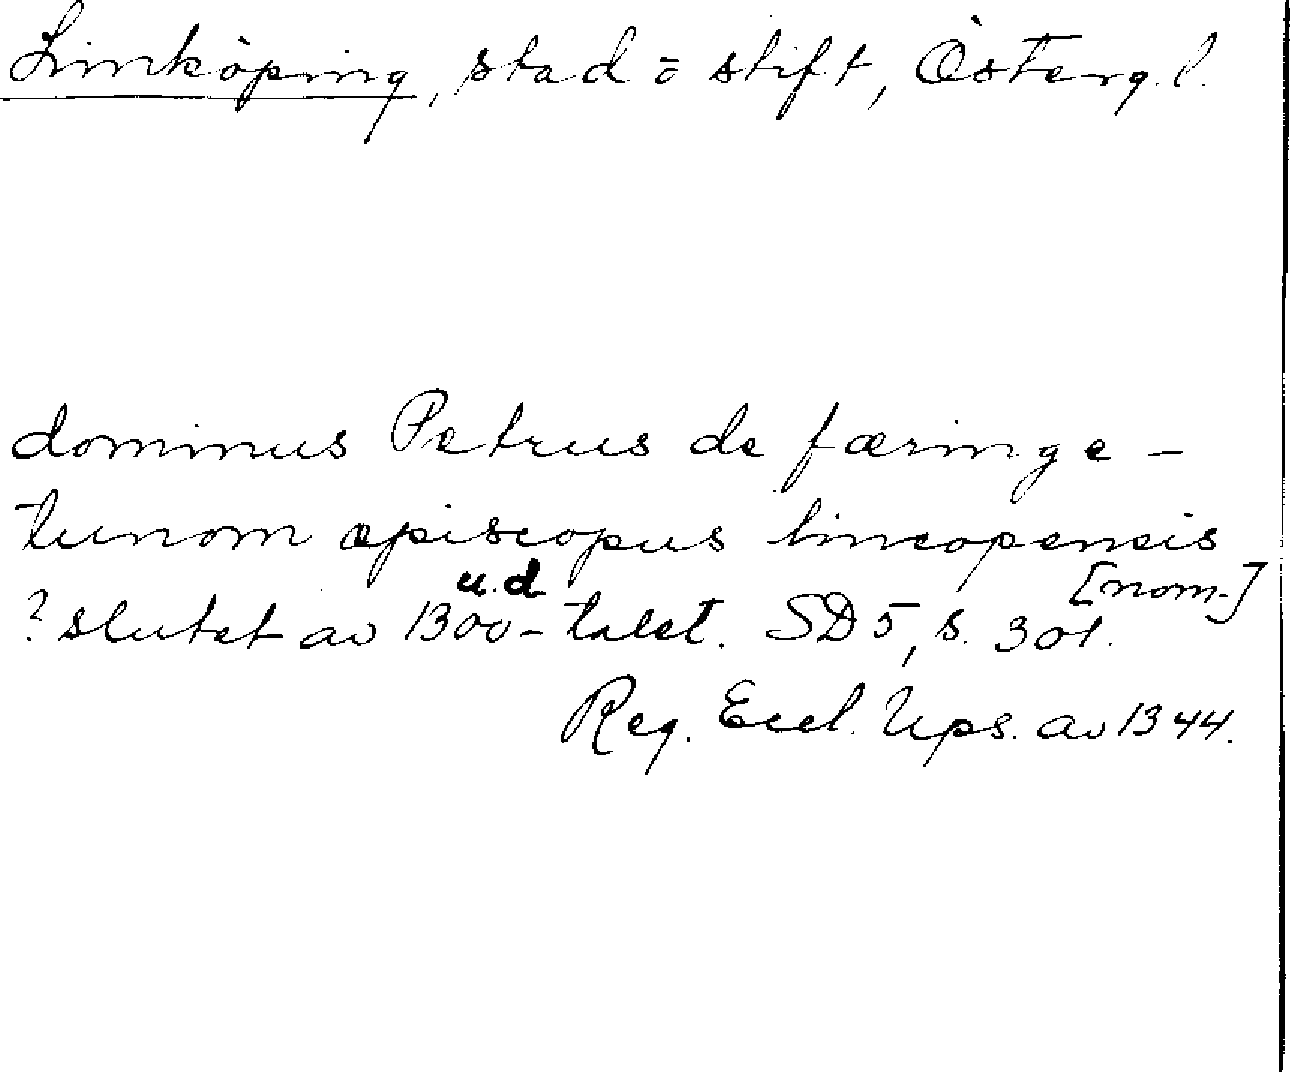 Linköping, stad o stift, Österg. l.
dominus Petrus de færinge-
tunom episcopus lincopensis
u.d. [nom.]
? slutet av 1300-talet. SD 5, s. 301.
Reg. Eccl. Ups. av 1344.